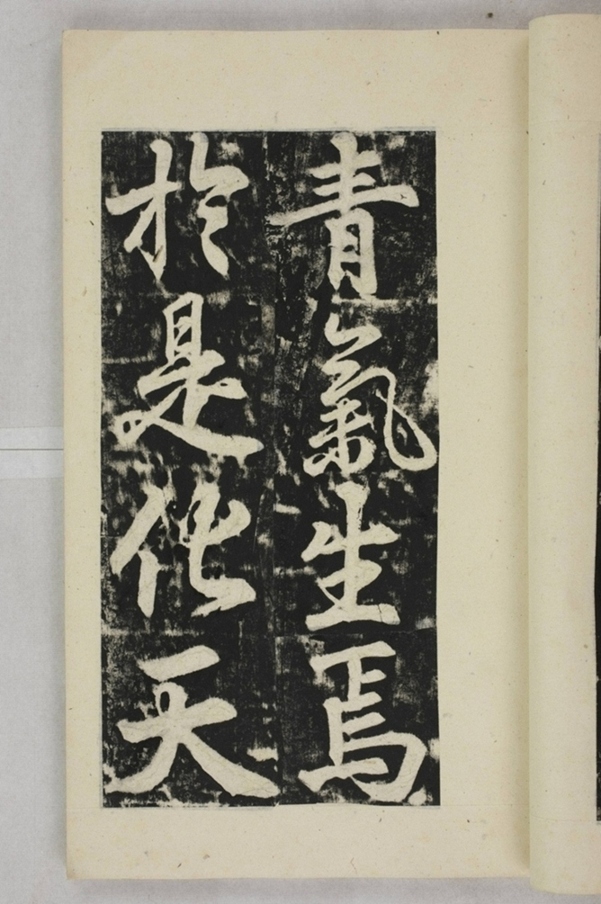 青氣生焉
於是化天